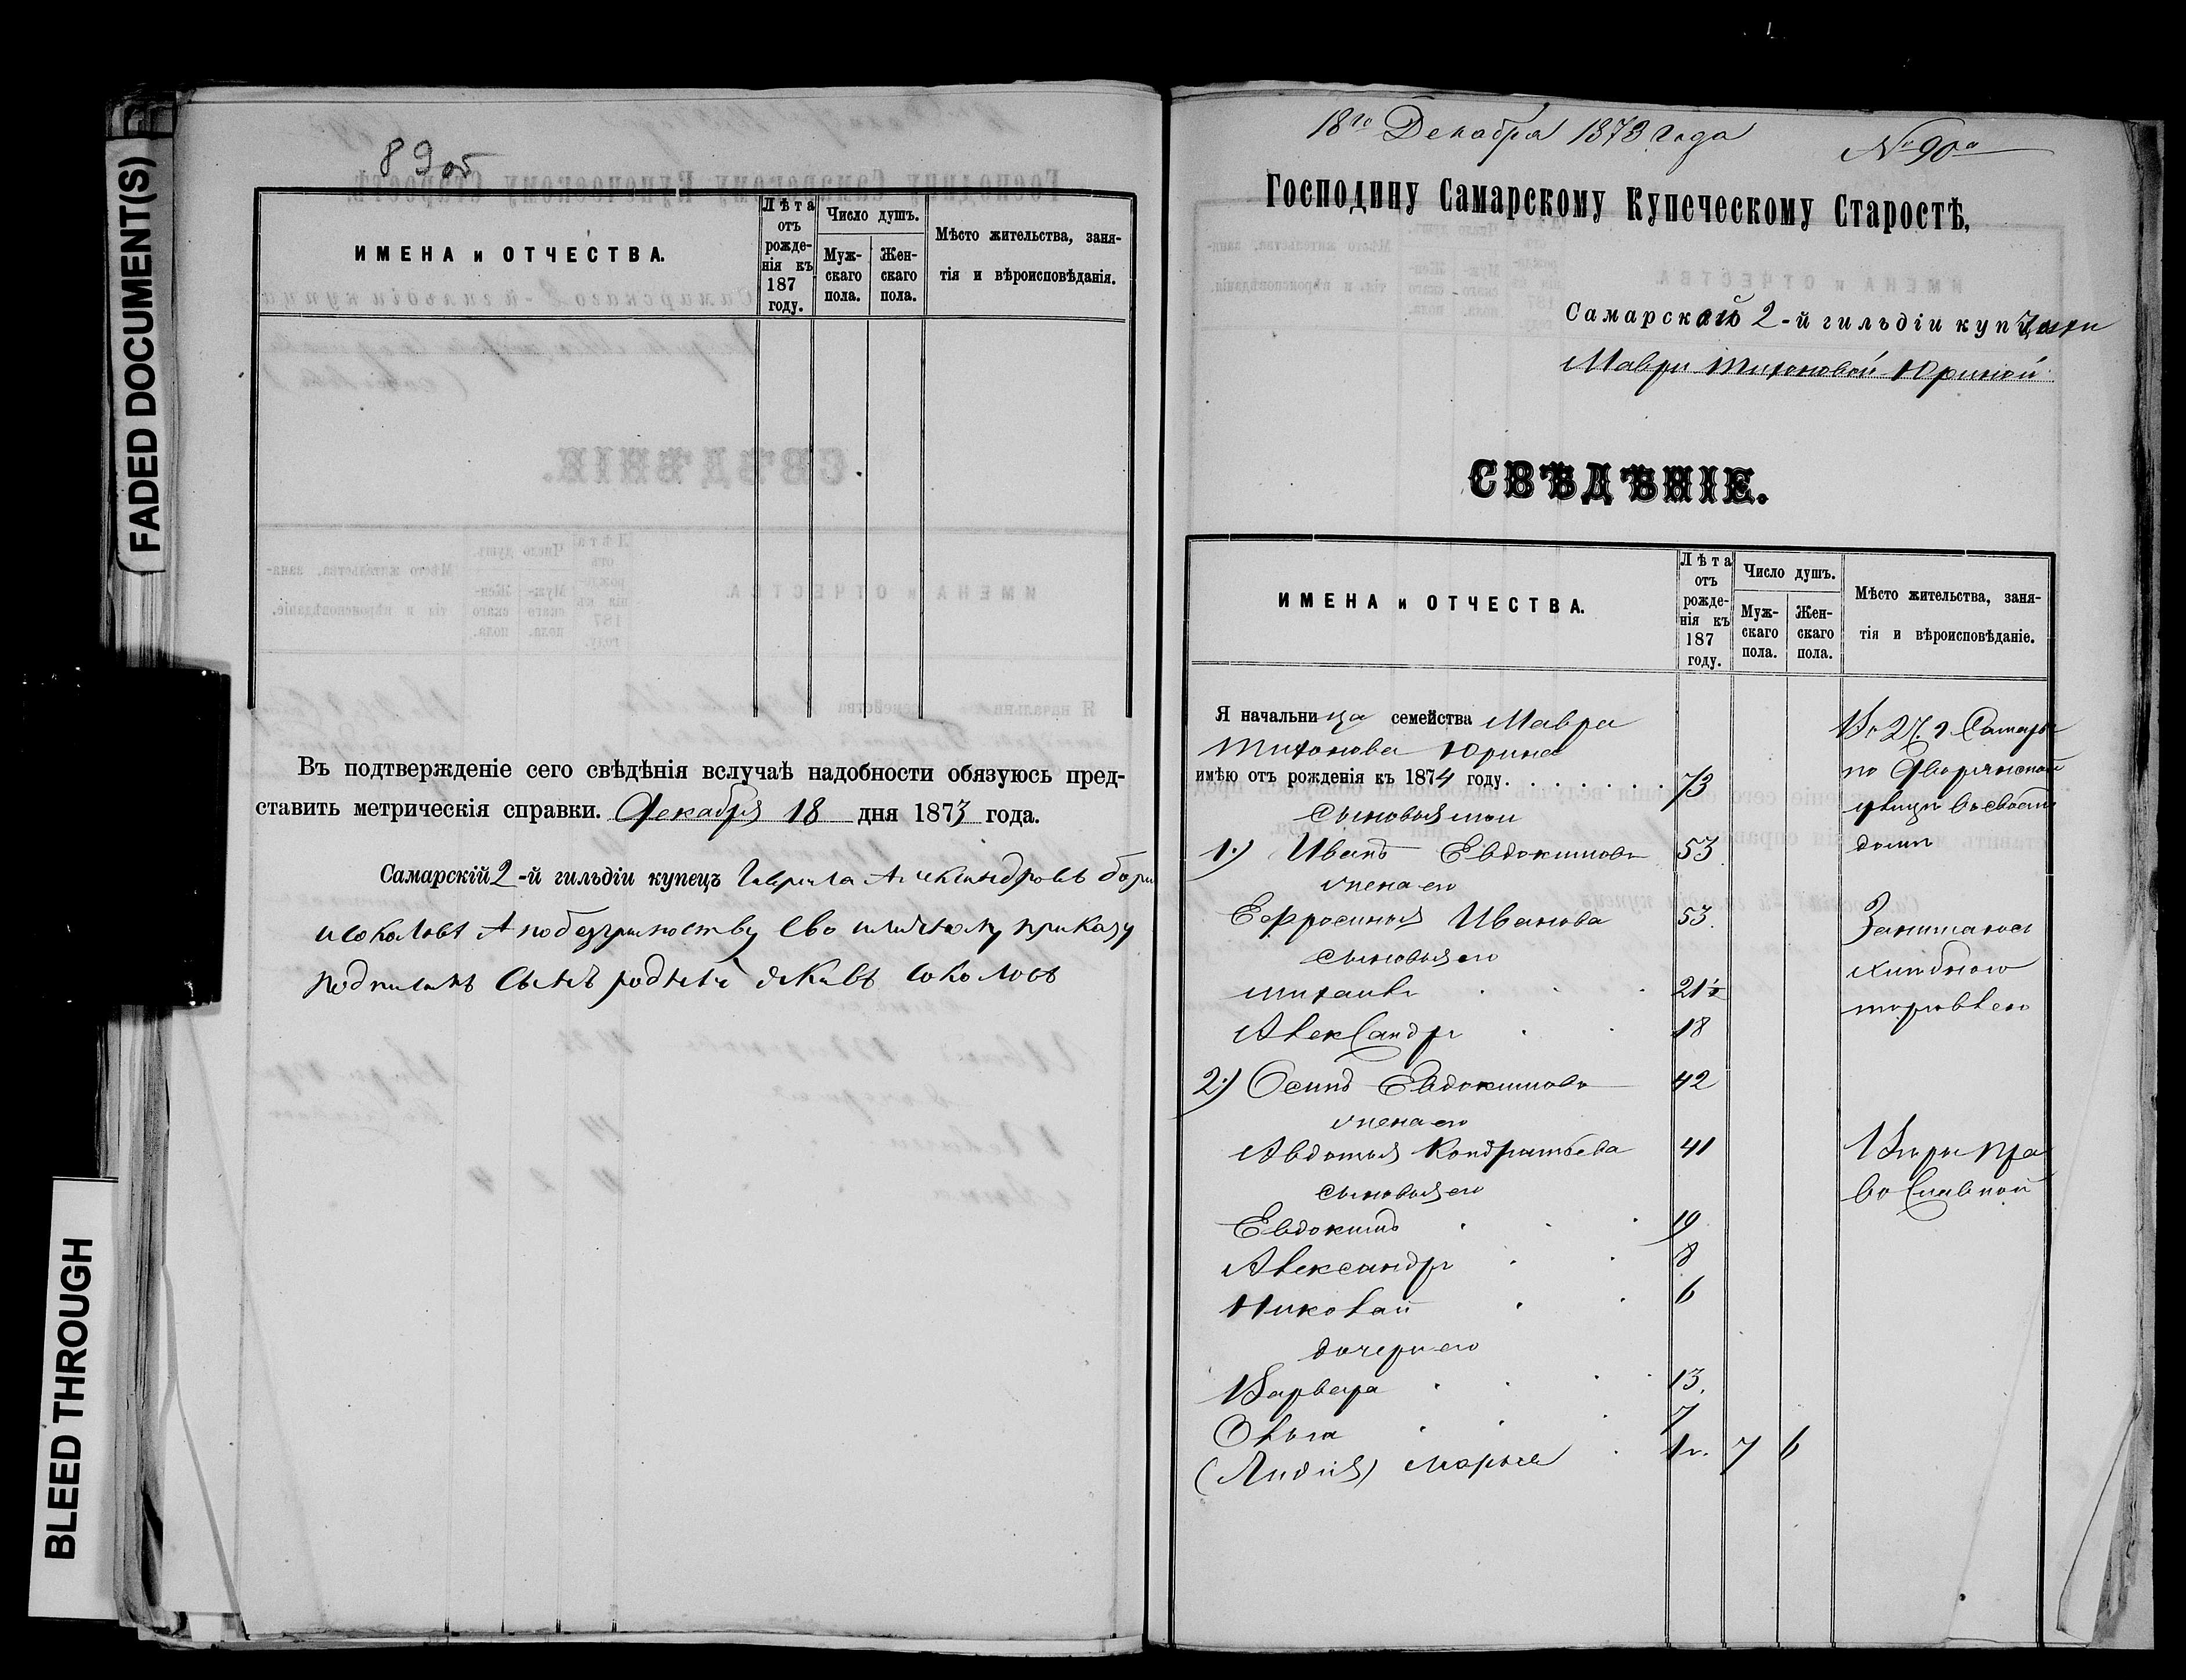 FADED DOCUMENT(S)
BLEED THROUGH
89об
ИМЕНА и ОТЧЕСТВА.
Лѣта отъ рожденія къ 187 году.
Число душъ.
Мужскаго пола.
Женскаго пола.
Мѣсто жительства, занятія и вѣроисповѣданія.
Въ подтвержденіе сего свѣдѣнія вслучаѣ надобности обязуюсь пред-
ставить метрическія справки. Декабря 18 дня 1873 года.
Самарскій 2-й гильдіи купецъ Гаврила Александровъ
соколовъ А побезграмотству Ево приказу
подписалъ Сынъ роднъй соколовъ
18го Декабря 1873 Года
№ 90й
Господину Самарскому Купеческому Старостѣ,
Самарской 2-й гильдіи купчихи
Маври Тихоновой Юриной
СВѢДѢНІЕ.
ИМЕНА и ОТЧЕСТВА.
Лѣта отъ рожденія къ 187 году.
Число душъ.
Мужскаго пола.
Женскаго пола.
Мѣсто жительства, занятія и вѣроисповѣданіе.
Я начальница семейства Мавра
Тихонова Юрина
имѣю отъ рожденія къ 1874 году. 73
сыновья мои
1.) Иванъ Евдокимовъ 53
жена его
Ефросинья Иванова 53.
сыновья его
михаилъ 21½
Александръ 18
2.) Осипъ Евдокимовъ 42
жена его
Авдотья Кондратьева 41
сыновья его
Евдокимъ 19
Александръ 8
Николай 6
дочери его
Варвара 13.
Ольга 7
(Лидия) марья 1 г. 7 6
Во 2й ч Самары
по Дворянской
улице всвоем
доме
Занимаюсь
хлебною
торговлею
Веры пра
вославной